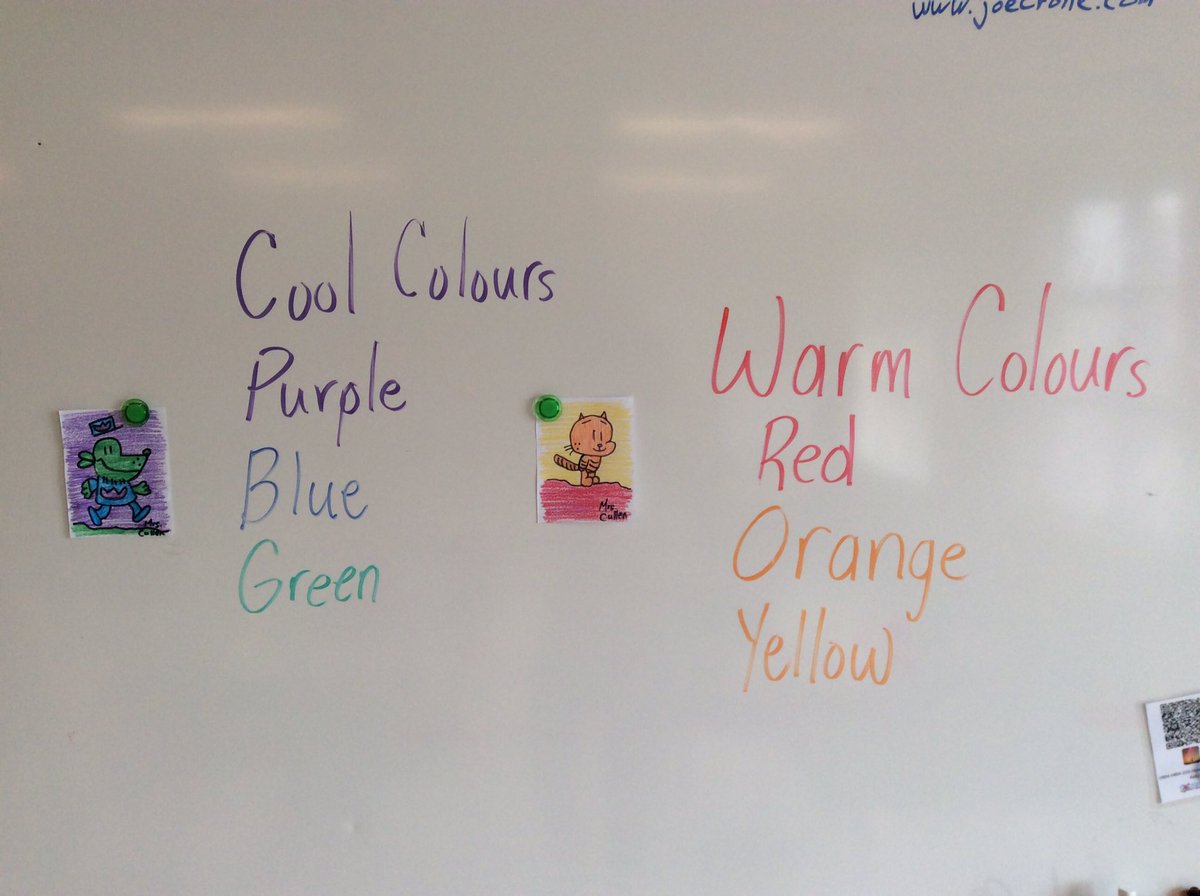 Cool Colours
Purple
Blue
Green
Mrs.
Cullen
Warm Colours
Red
Orange
Yellow
Mrs.
Cullen